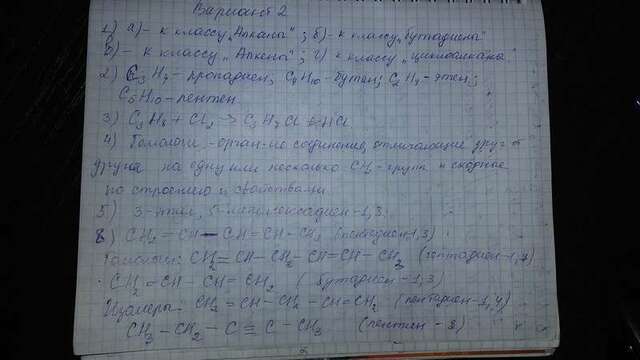 Вариант 2
1) а) - к классу "Алкана"; б) - к классу "Бутадиина"
в) - к классу "Алкена"; г) к классу "Циклоалканы"
2) C3H8 - пропадиен; C4H10 - бутан; C2H4 - этен;
C5H10 - пентен
3) C3H8 + Cl2 → C3H7Cl + HCl
4) Гомологи - одни соединения, отличающиеся друг от
друга на одну или несколько CH2 - групп и сходные
по строению и свойствам
5) 3 -1,3
6) CH2=CH-CH=CH-CH3 (пентадиен-1,3)
Гомологи: CH2=CH-CH2-CH=CH-CH3 (гексадиен-1,4)
CH2=CH-CH=CH2 (бутадиен-1,3)
Изомеры: CH2=CH-CH2-CH=CH2 (пентадиен-1,4)
CH3-CH2-C≡C-CH3 (пентин-2)